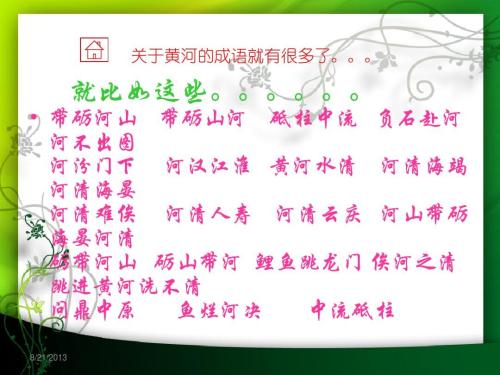 关于黄河的成语就有很多了。。。
就比如这些。。。。。。
• 带砺河山 带砺山河 砥柱中流 负石赴河
河不出图
河汾门下 河汉江淮 黄河水清 河清海竭
河清海晏
河清难俟 河清人寿 河清云庆 河山带砺
海晏河清
砺带河山 砺山带河 鲤鱼跳龙门 俟河之清
跳进黄河洗不清
问鼎中原 鱼烂河决 中流砥柱
8/21/2013